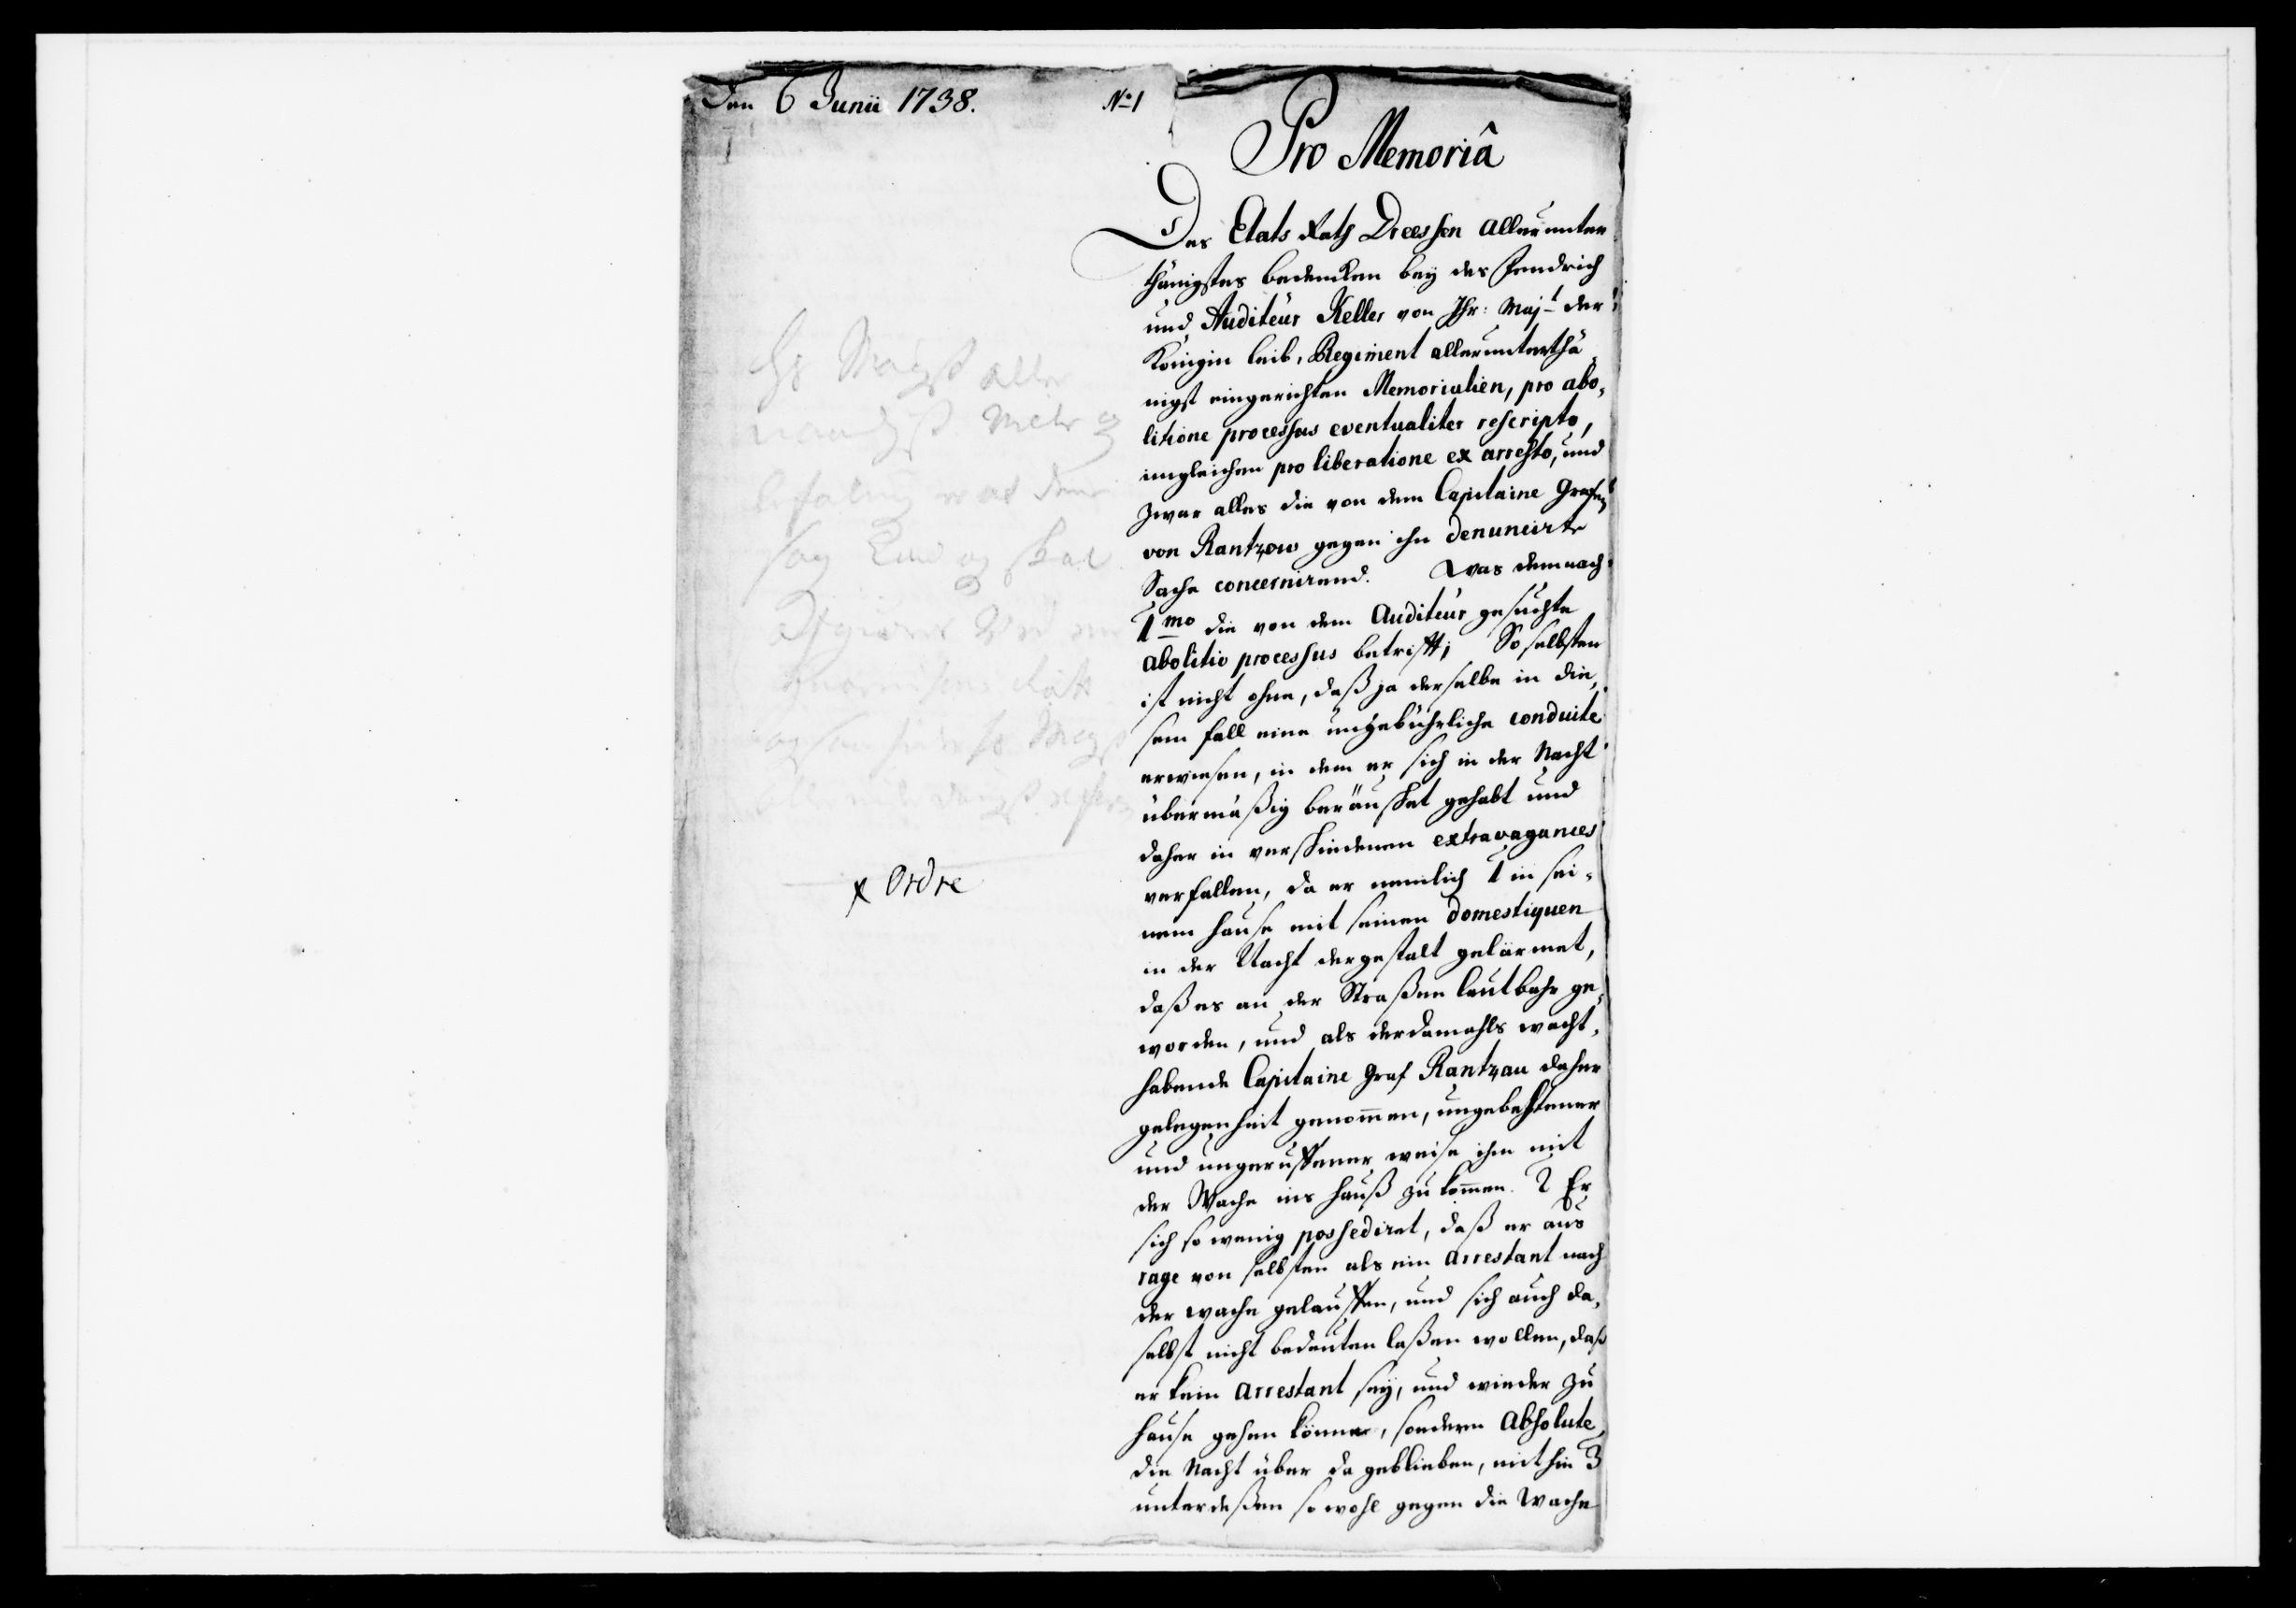 Den 6 Junii 1738.
No 1
Pro Memoriâ
Des Etats Rath Dreessen allerunter
thänigstes bedencken bey des Fendrich
und Auditeur Keller von Ihr: Majt der
Königin leib, Regiment allerunterthä
nigst eingerichten Memorialien, pro abo,
litione processus eventualiter rescripto,
imgleichen pro liberatione ex arresto, und
zwar alles die von dem Capitaine Grafen
von Rantzow gegen ihn denuncirte
Sache concernirend. Was demnach
1mo die von dem Auditeur gesuchte
abolitio processus betrifft; So selbsten
ist nicht ohne, daß ja derselbe in die,
sem fall eine ungebührliche conduite
erwiesen, in dem er sich in der Nacht
übermäßig beräuschet gehabt und
daher in verschiedenen extravagances
verfallen, da er nemlich 1 in sei,
nem hause mit seinen domestiquen
in der Nacht dergestalt gelärmet,
daß es an der Straßen lautbahr ge,
worden, und als der damahls wacht,
habende Capitaine Graf Rantzau daher
gelegenheit genommen, ungebehtener
und ungeruffener weise ihm mit
der Wache ins hauß zu kommen. 2 Er
sich so wenig possediret, daß er aus
rage von selbsten als ein arrestant nach
der wache gelauffen, und sich auch da,
selbst nicht bedeuten laßen wollen, daß
er kein arrestant sey, und wieder zu
hause gehen könne, sondern absolute
die Nacht über da geblieben, mithin 3
unterdeßen so wohl gegen die Wache
Hs Mayst aller
naadigst
befaling
og skal
x Ordre